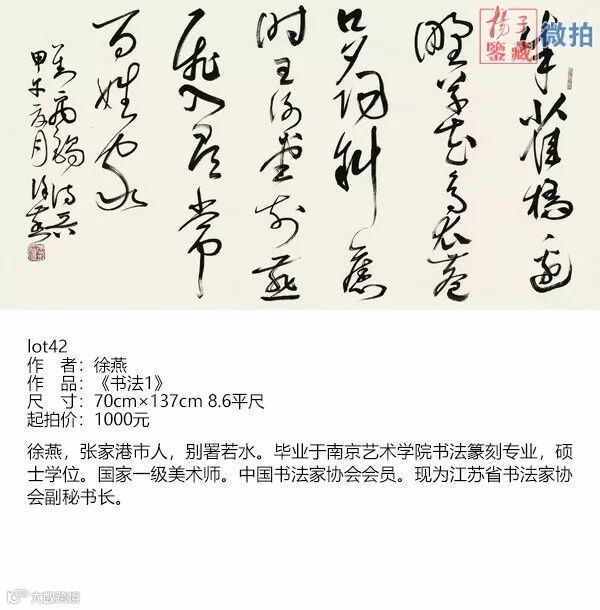 楊子
鑒藏
微拍
朱雀橋邊
野草花烏衣巷
口夕陽斜舊
时王谢堂前燕
飛入尋常
百姓家
禹錫詩
甲午 月徐燕
lot42
作 者：徐燕
作 品：《书法1》
尺 寸：70cm×137cm 8.6平尺
起拍价：1000元
徐燕，张家港市人，别署若水。毕业于南京艺术学院书法篆刻专业，硕
士学位。国家一级美术师。中国书法家协会会员。现为江苏省书法家协
会副秘书长。
大数跨境